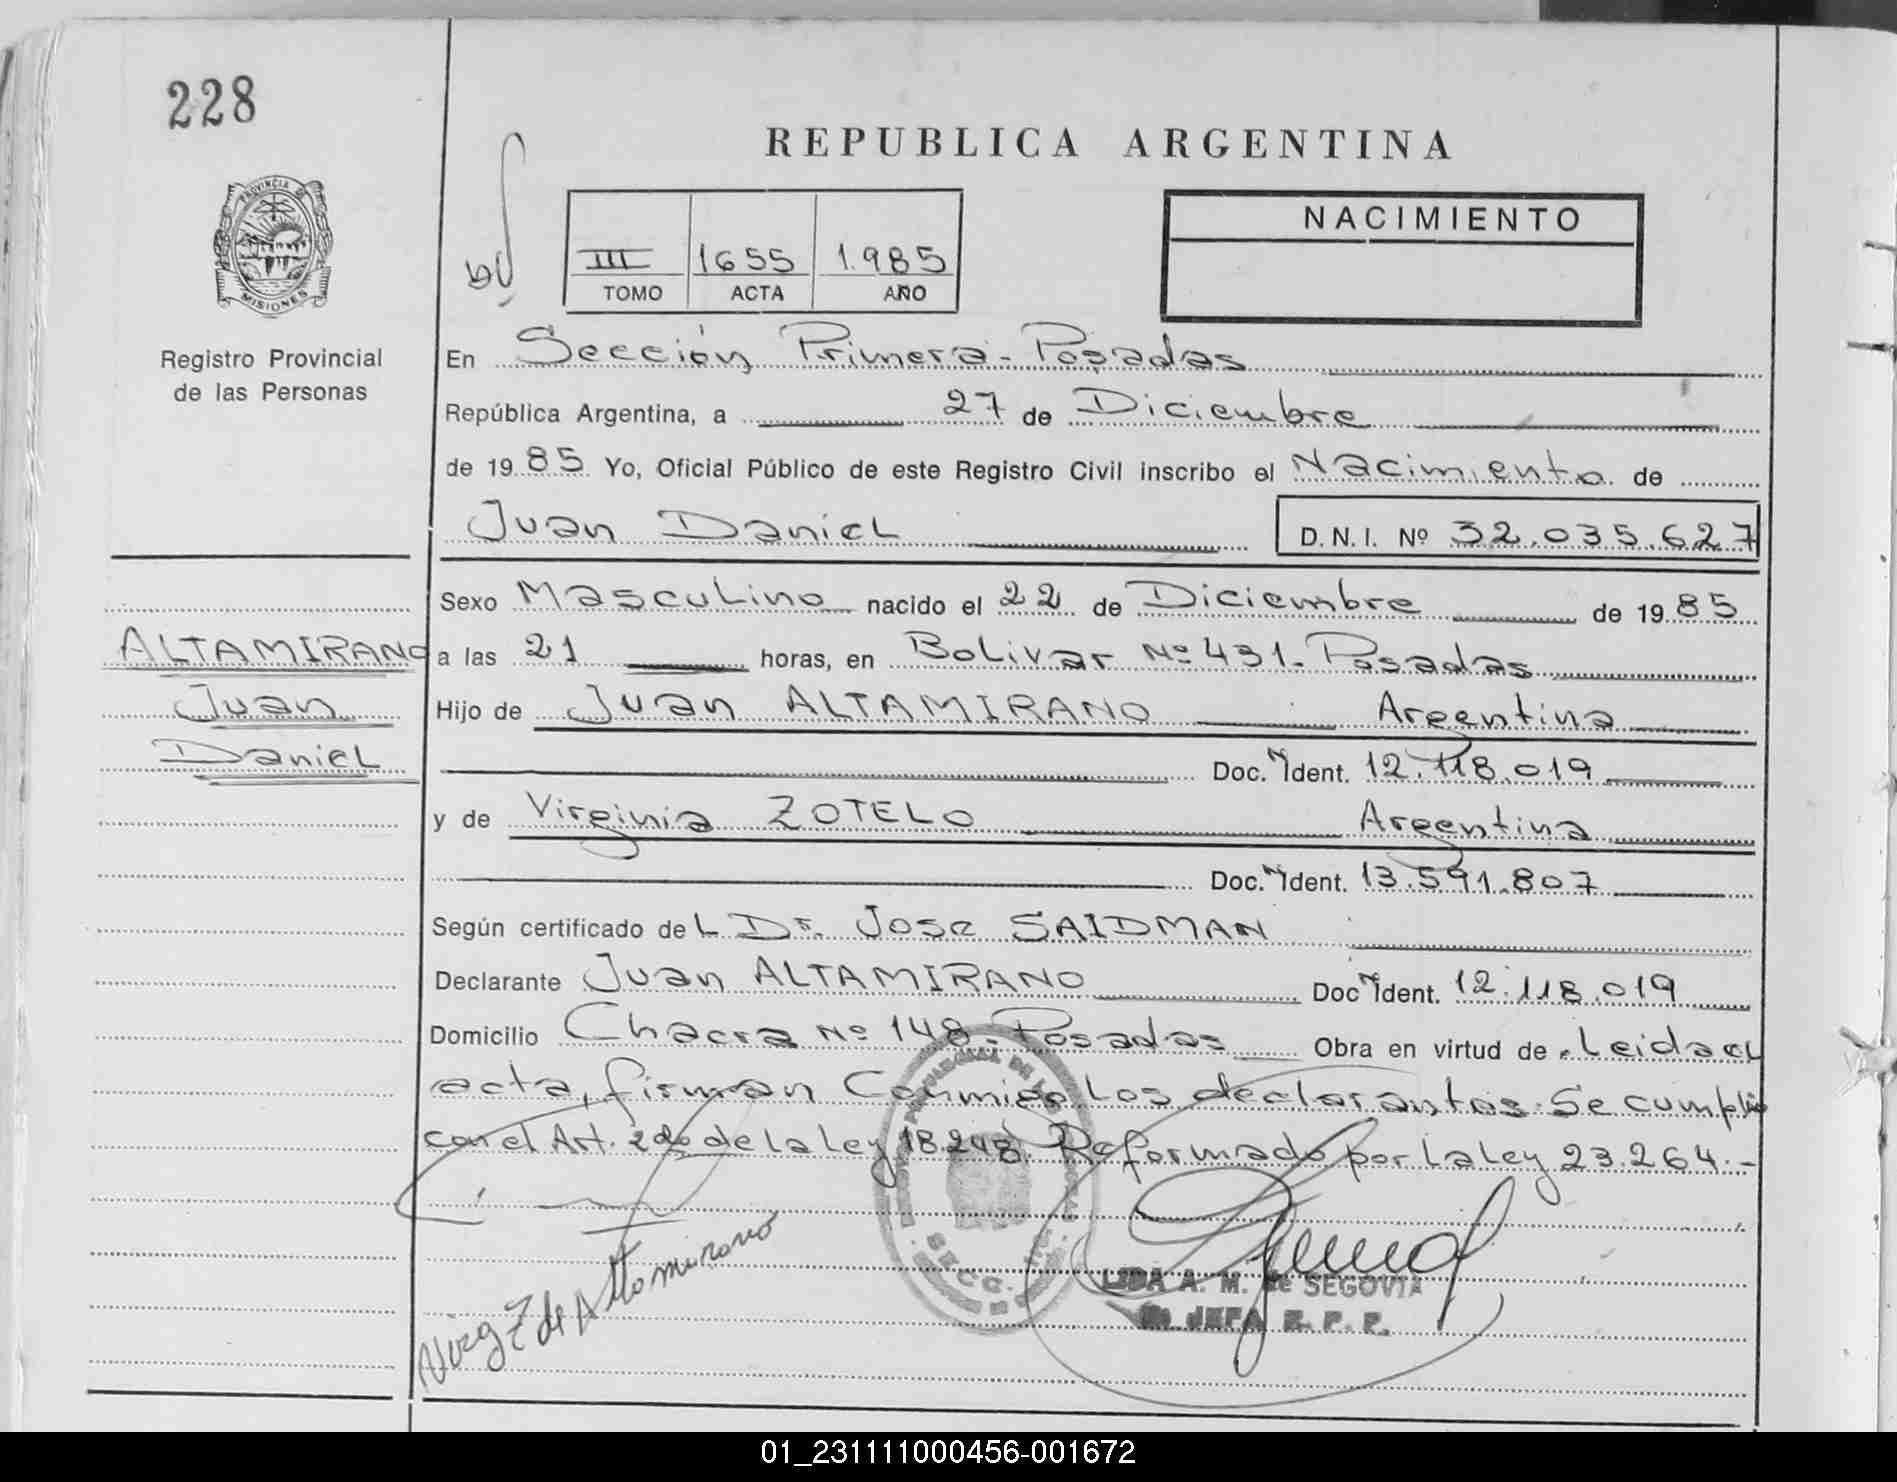 228
REPUBLICA ARGENTINA
PROVINCIA DE
MISIONES
Registro Provincial
de las Personas
III 1655 1.985
TOMO ACTA AÑO
NACIMIENTO
En Sección Primera - Posadas
República Argentina, a 27 de Diciembre
de 1985 Yo, Oficial Público de este Registro Civil inscribo el Nacimiento de
Juan Daniel D.N.I. Nº 32.035.627
Sexo Masculino nacido el 22 de Diciembre de 1985
ALTAMIRANO
Juan
Daniel
a las 21 horas, en Bolivar Nº 431 - Posadas
Hijo de Juan ALTAMIRANO Argentina
Doc. Ident. 12.118.019
y de Virginia ZOTELO Argentina
Doc. Ident. 13.591.807
Según certificado del Dr. Jose SAIDMAN
Declarante Juan ALTAMIRANO Doc Ident. 12.118.019
Domicilio Chacra Nº 148 - Posadas Obra en virtud de Leida el
acta, firman Conmigo Los declarantes. Se cumplio
con el Art. 2do de la Ley 18.248. Reformado por la Ley 23.264.-
Virg Z de Altamirano
SECC.
LIDA A. M. de SEGOVIA
JEFA R. P. P.
01_231111000456-001672